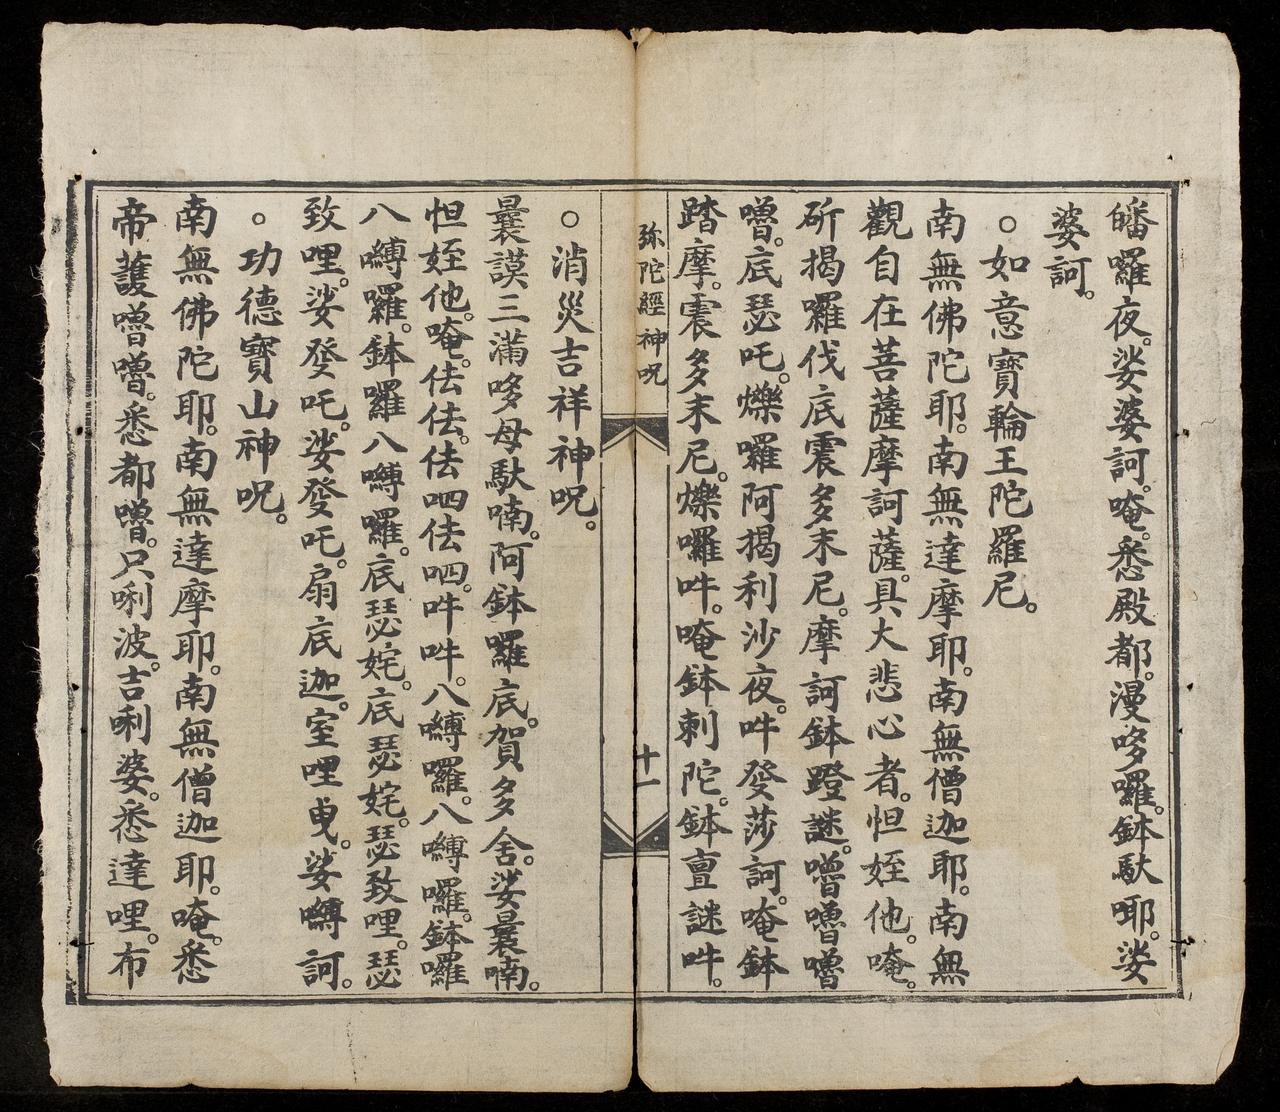 皤囉夜。娑婆訶。唵。悉殿都。漫哆囉。鉢馱耶。娑
婆訶。
○如意寶輪王陀羅尼。
南無佛陀耶。南無達摩耶。南無僧迦耶。南無
觀自在菩薩摩訶薩。具大悲心者。怛姪他。唵。
斫揭囉伐底震多末尼。摩訶鉢蹬謎。嚕嚕嚕
嚕。底瑟吒。爍囉阿揭利沙夜。吽發莎訶。唵鉢
踏摩。震多末尼。爍囉吽。唵鉢剌陀。鉢亶謎吽。
弥陀經神呪
十一
○消災吉祥神呪。
曩謨三滿哆母馱喃。阿鉢囉底。賀多舍。娑曩喃。
怛姪他。唵。佉佉。佉呬佉呬。吽吽。入嚩囉。入嚩囉。鉢囉
入嚩囉。鉢囉入嚩囉。底瑟姹。底瑟姹。瑟致哩。瑟
致哩。娑發吒。娑發吒。扇底迦。室哩曳。娑嚩訶。
○功德寶山神呪。
南無佛陀耶。南無達摩耶。南無僧迦耶。唵。悉
帝護嚕嚕。悉都嚕。只唎波。吉唎婆。悉達哩。布